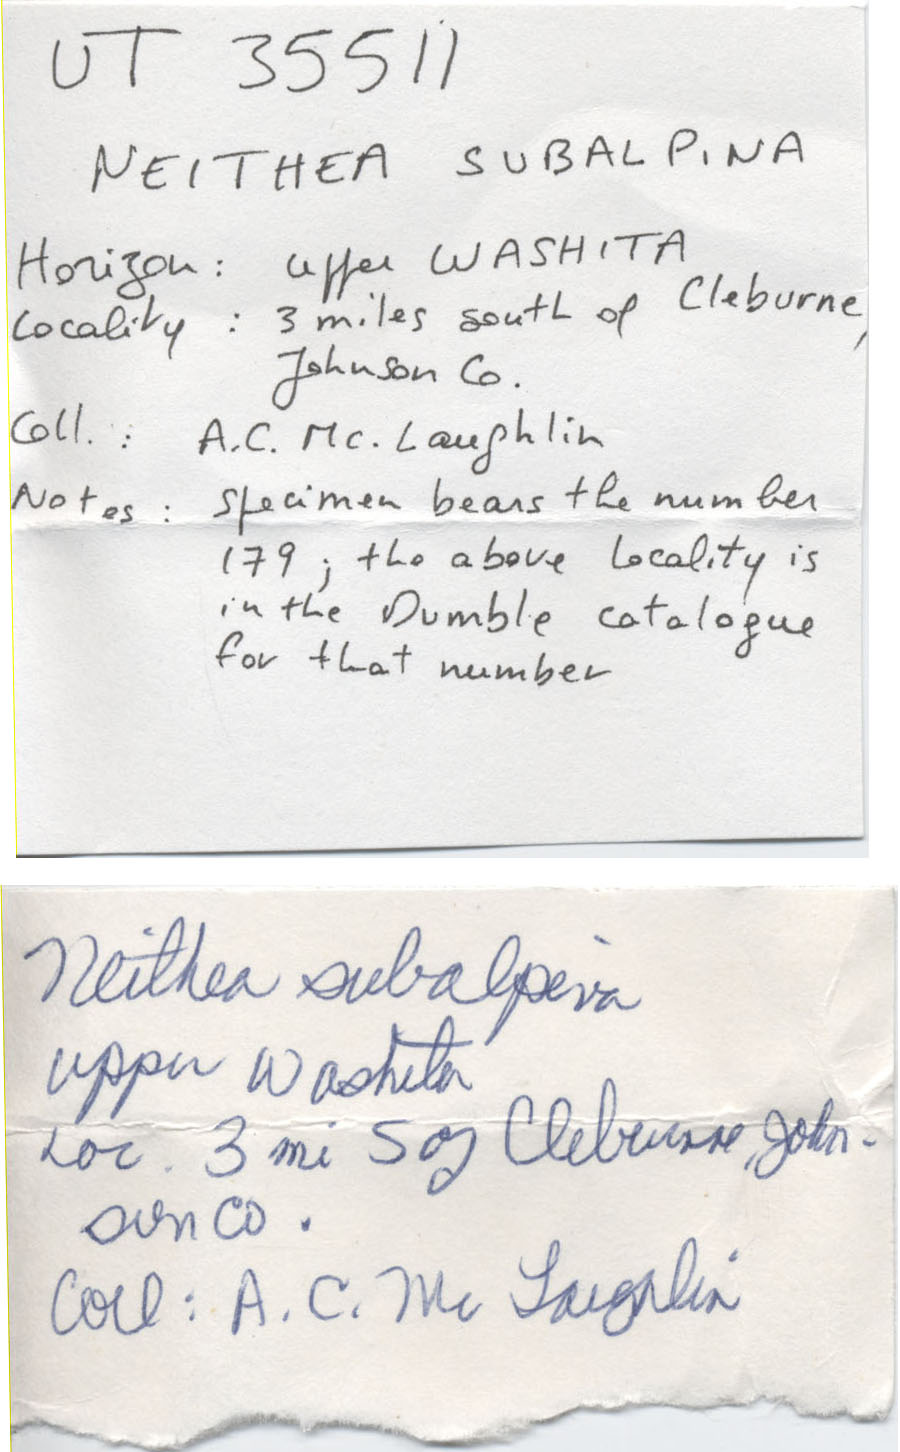 UT 35511
NEITHEA SUBALPINA
Horizon: upper WASHITA
Locality: 3 miles south of Cleburne,
Johnson Co.
Coll.: A.C. Mc. Laughlin
Notes: specimen bears the number
179; the above locality is
in the Dumble catalogue
for that number
Neithea subalpina
upper Washita
Loc. 3 mi S of Cleburne, John-
son Co.
Coll: A. C. Mc Laughlin